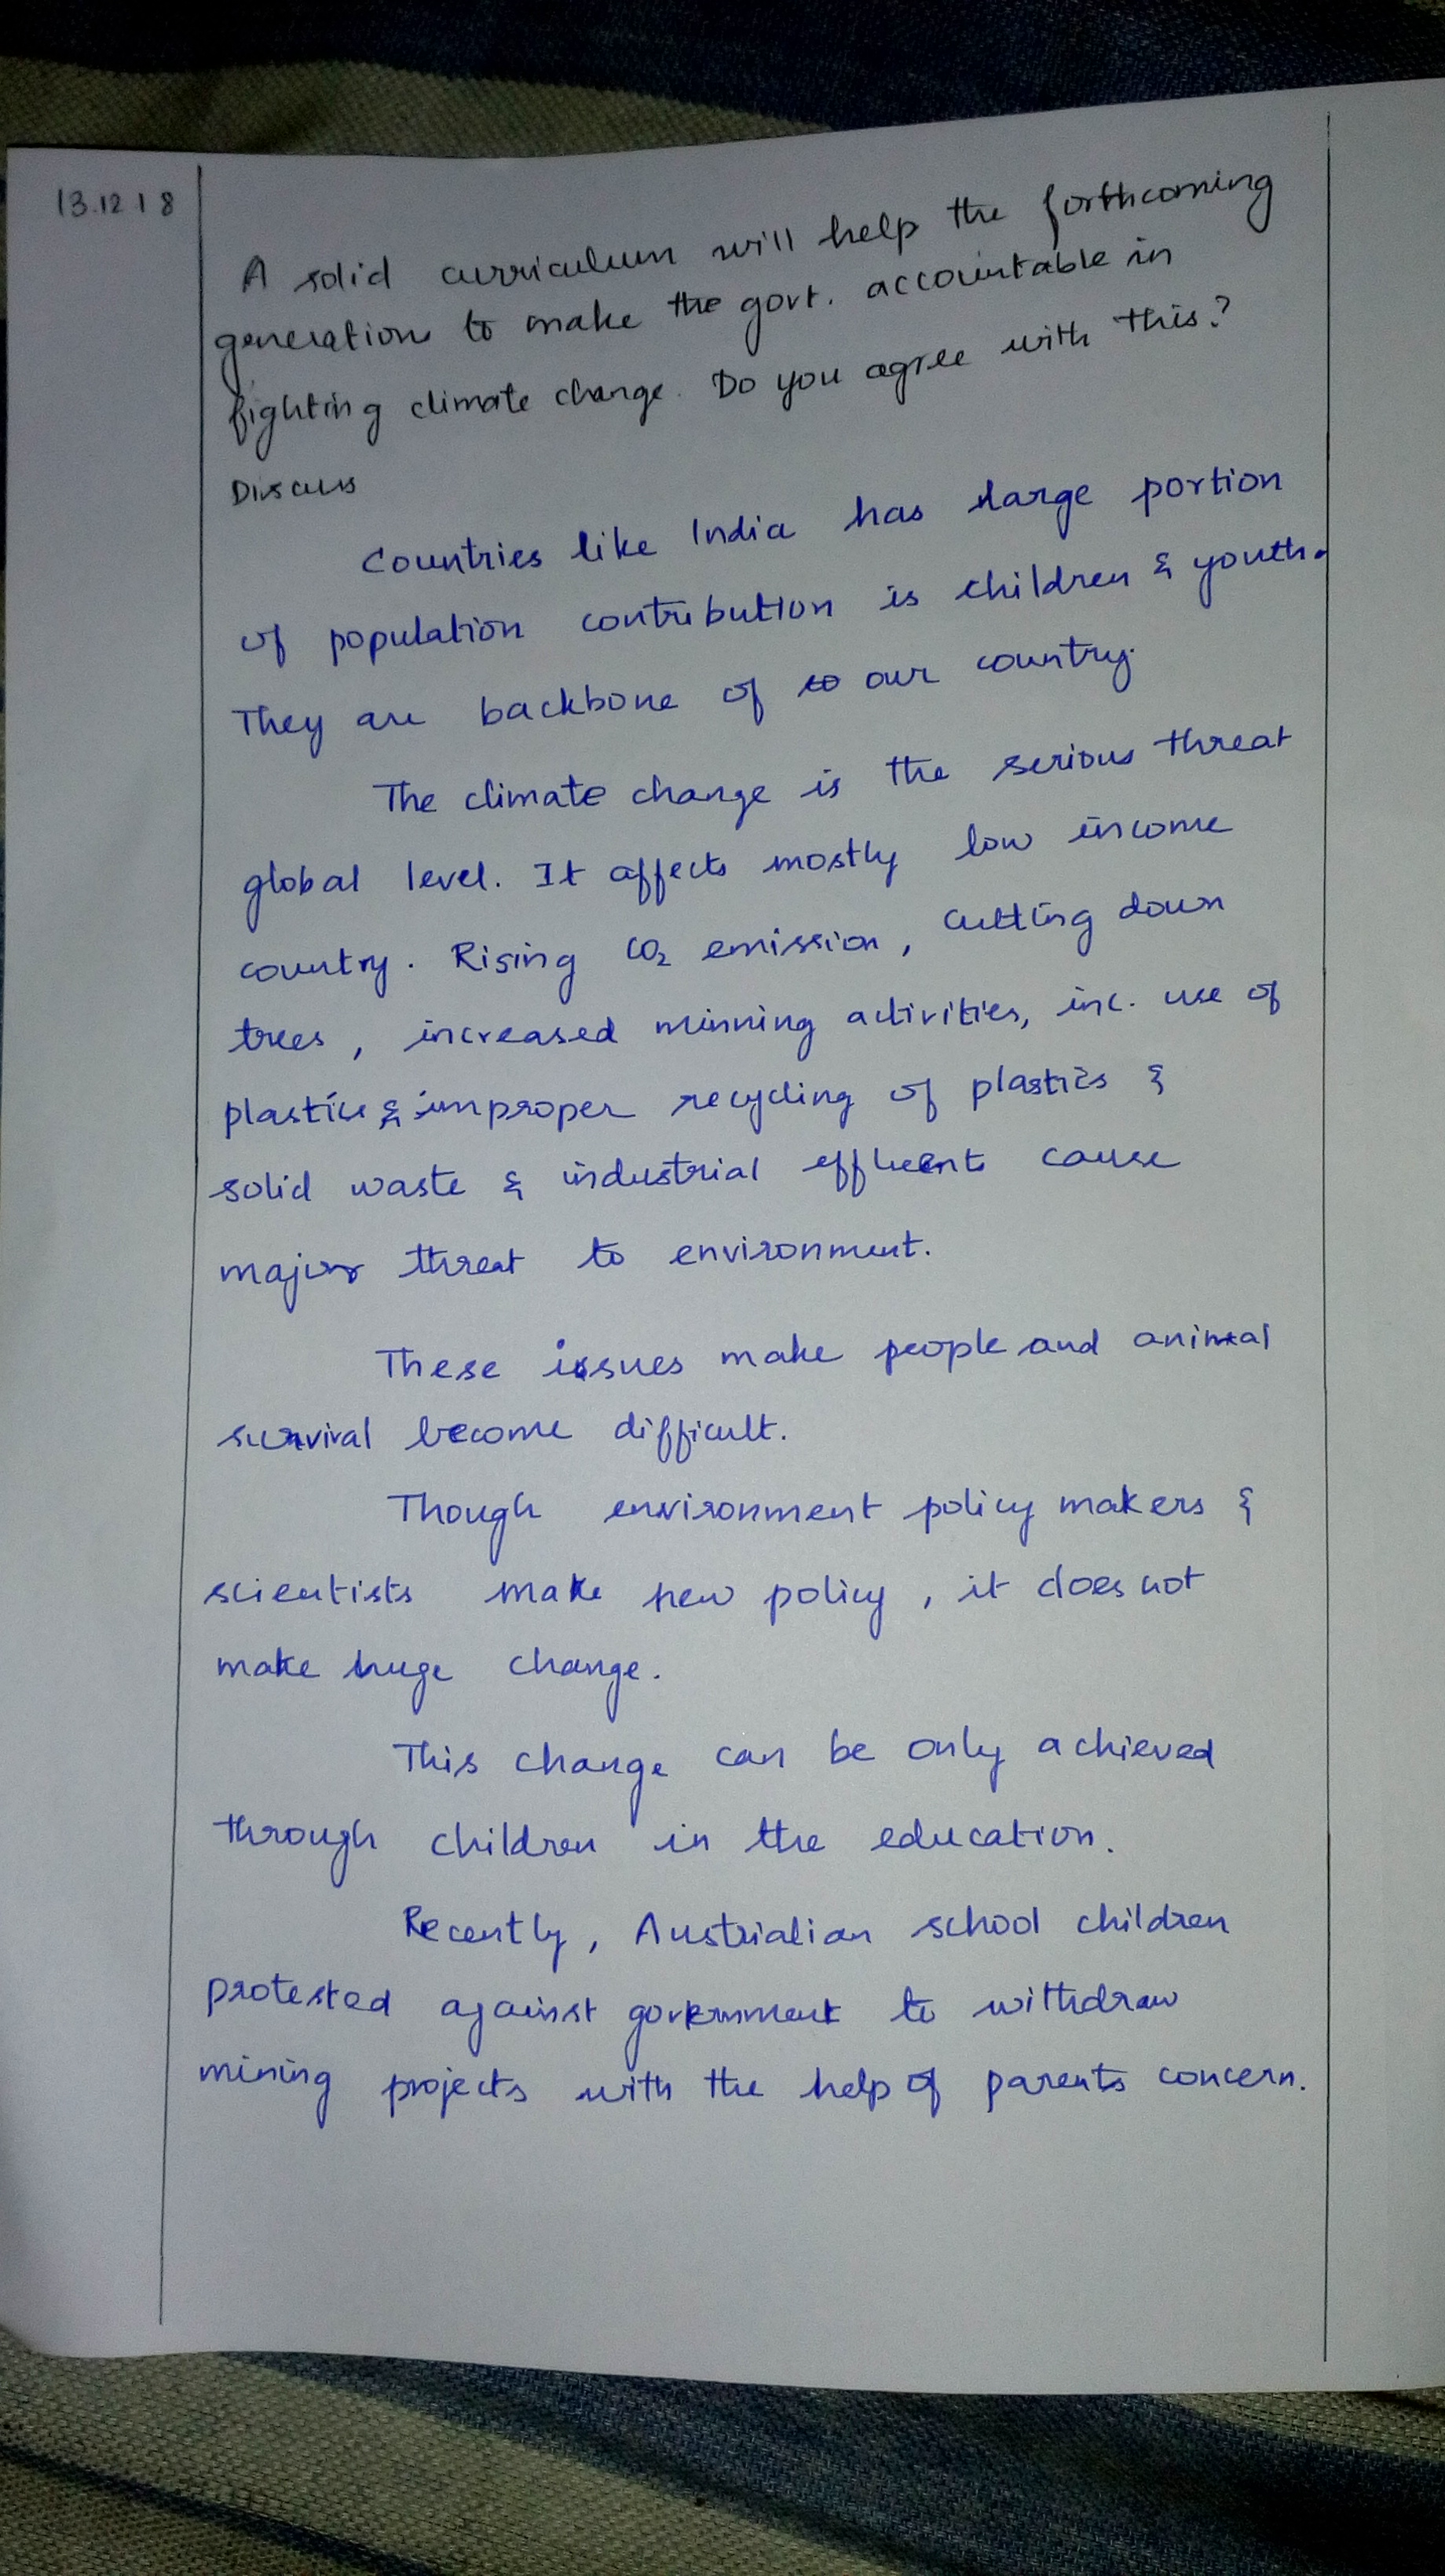 13.12.18
A solid curriculum will help the forthcoming
generations to make the govt. accountable in
fighting climate change. Do you agree with this?
Discuss
Countries like India has large portion
of population contribution is children & youth.
They are backbone of to our country.
The climate change is the serious threat
global level. It affects mostly low income
country. Rising CO₂ emission, cutting down
trees, increased minning activities, inc. use of
plastic & improper recycling of plastics &
solid waste & industrial effluent cause
major threat to environment.
These issues make people and animal
survival become difficult.
Though environment policy makers &
scientists make new policy, it does not
make huge change.
This change can be only achieved
through children in the education.
Recently, Austrialian school children
protested against government to withdraw
mining projects with the help of parents concern.